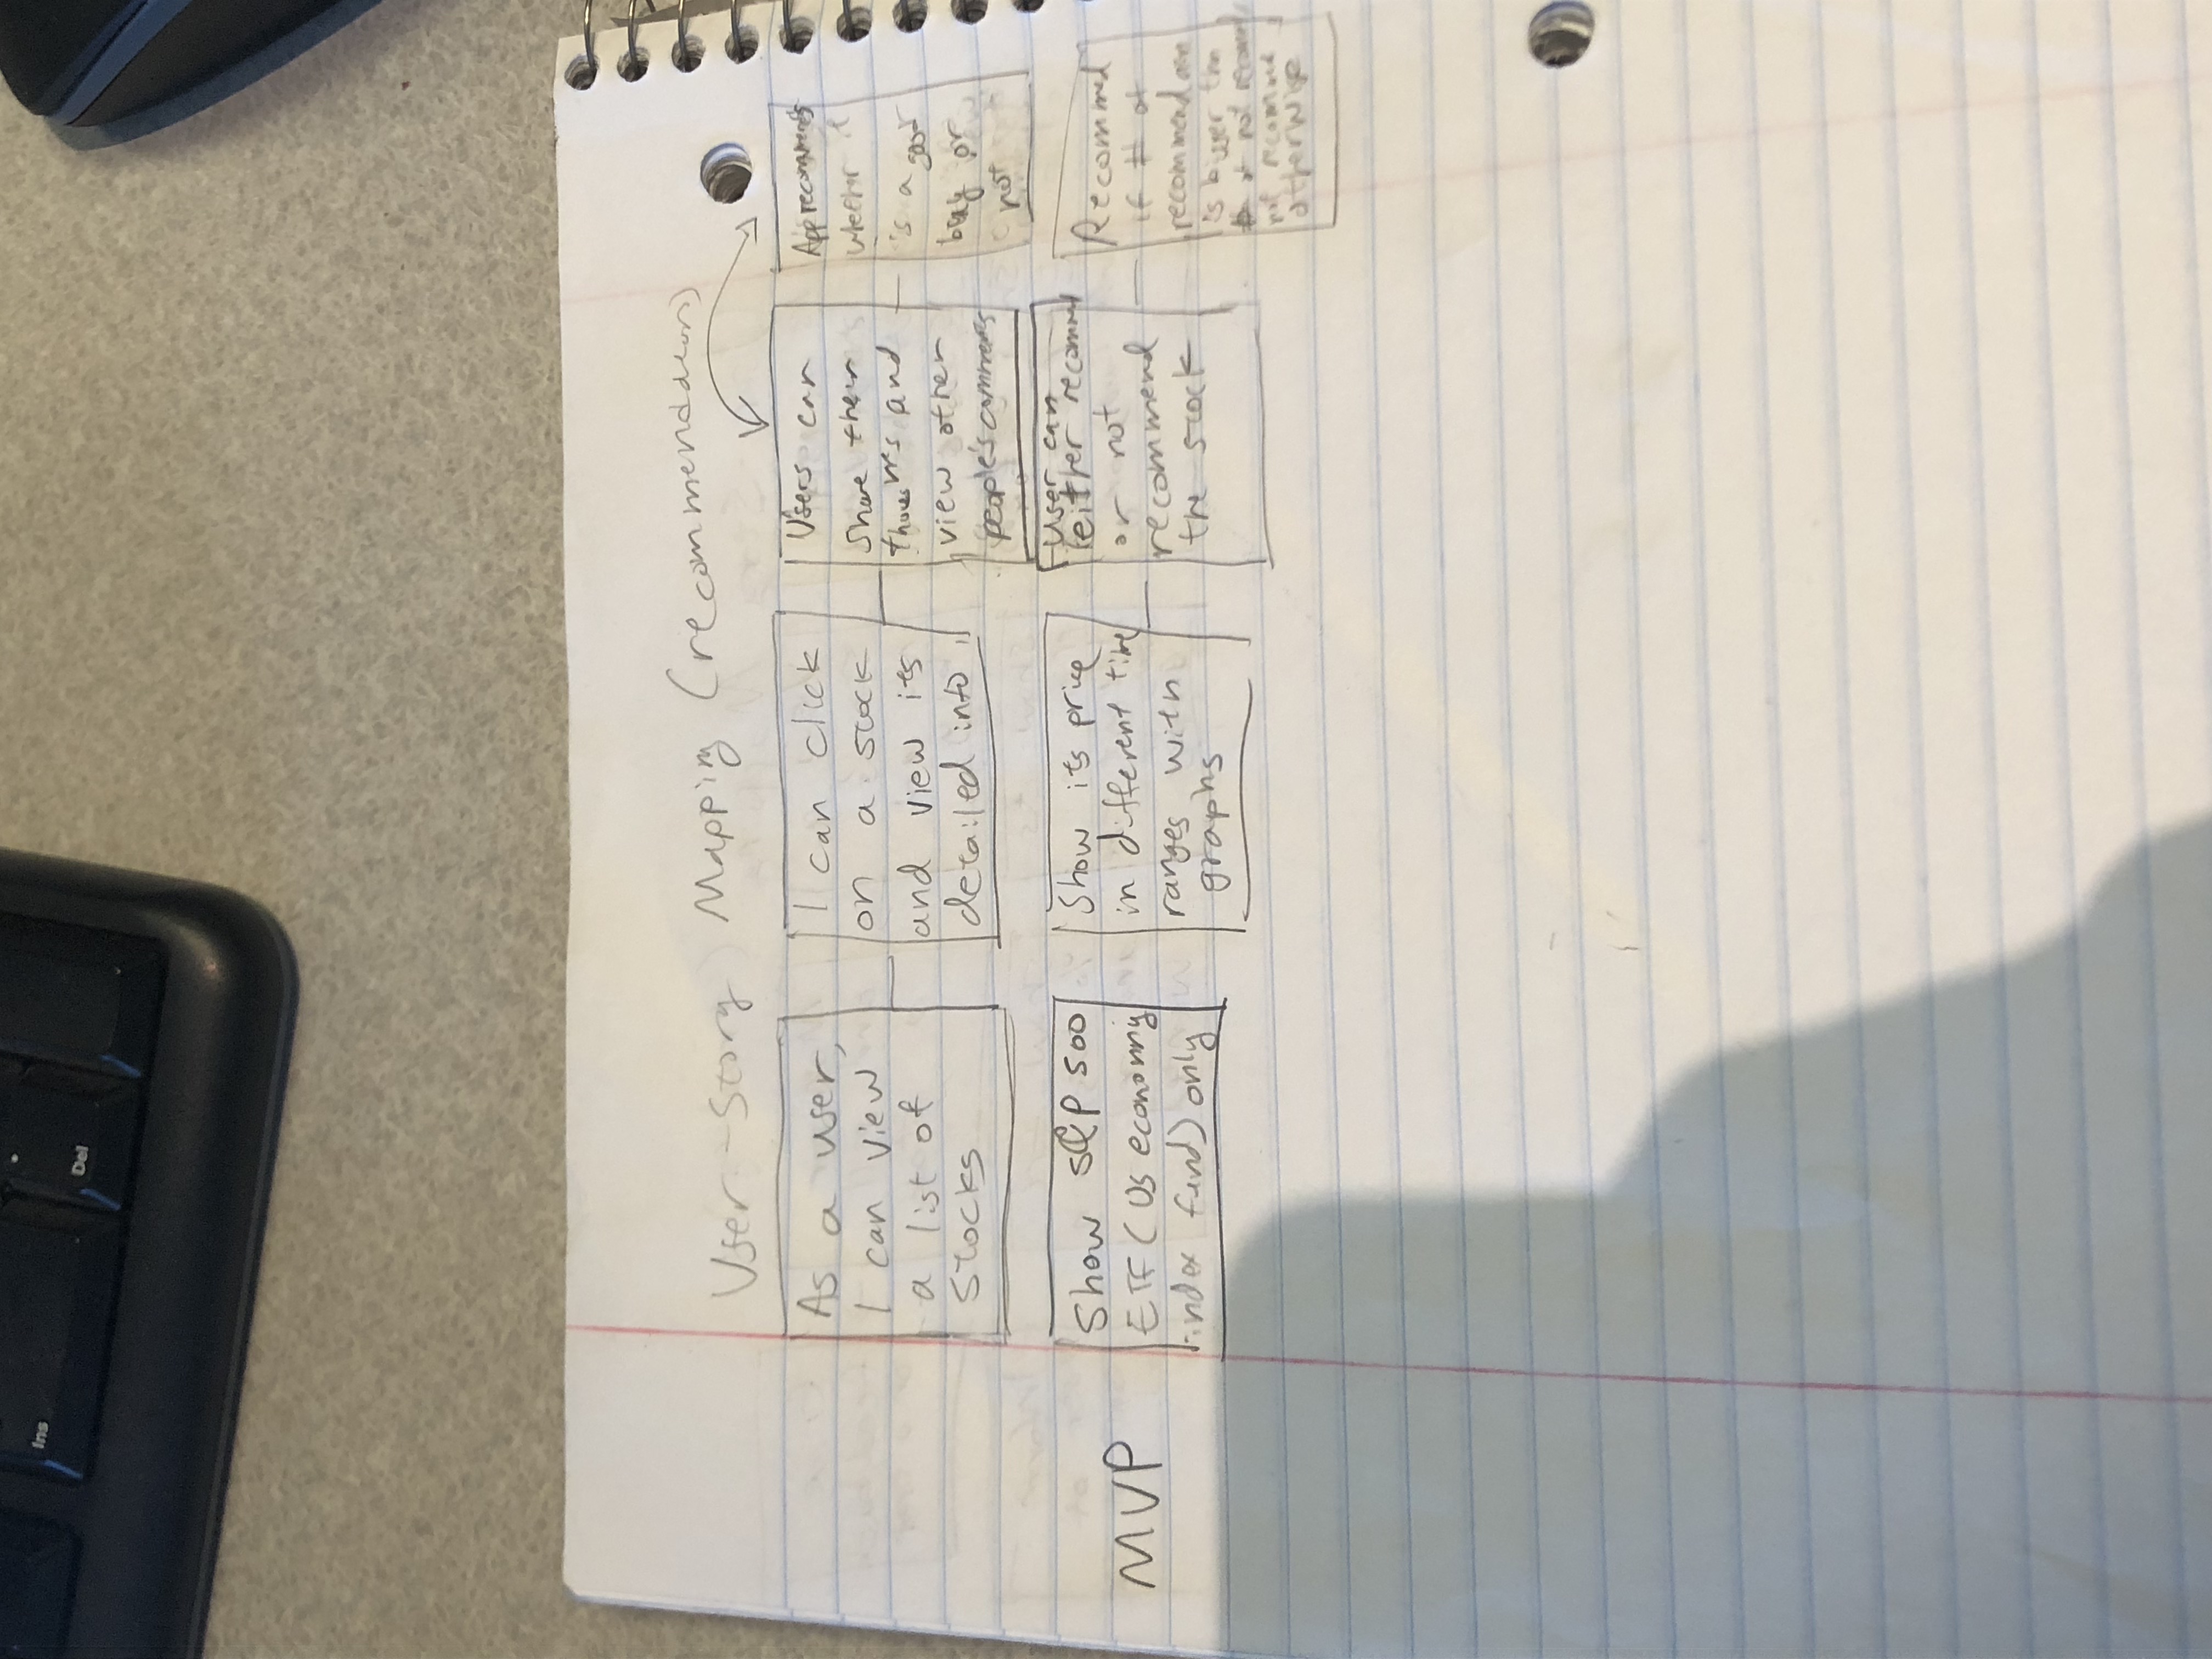 Ins
Del
User-Story Mapping (recommendation)
As a user,
I can view
a list of
stocks
I can click
on a stock
and view its
detailed info.
Users can
share their
and
view other
people's comments
App recommends
whether it
is a good
buy or
not
MVP
Show S&P 500
ETF (US economy
index fund) only
Show its price
in different time
ranges with
graphs
User can
either recommend
or not
recommend
the stock
Recommend
if # of
recommendation
is bigger than
# of not recommend
not recommend
otherwise